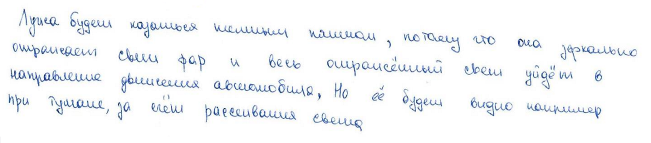 Лужа будет казаться тёмным пятном, потому что она зеркально
отражает свет фар и весь отражённый свет уйдёт в
направление движения автомобиля, Но её будет видно например
при тумане, за счёт рассеивания света